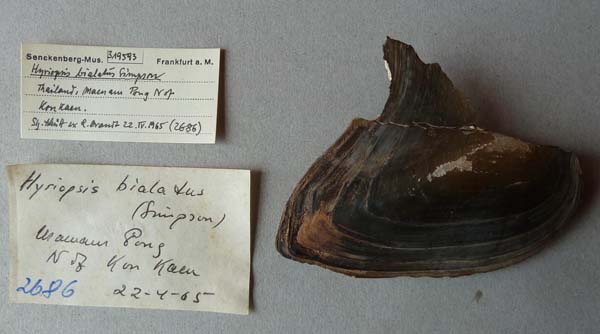 Senckenberg-Mus. 319593 Frankfurt a. M.
Hyriopsis bialatus Simpson
Thailand, Maenam Pong N of
Kon Kaen.
R. Brandt 22. IV. 1965 (2686)
Hyriopsis bialatus
(Simpson)
Maenam Pong
N of Kon Kaen
2686 22-4-65